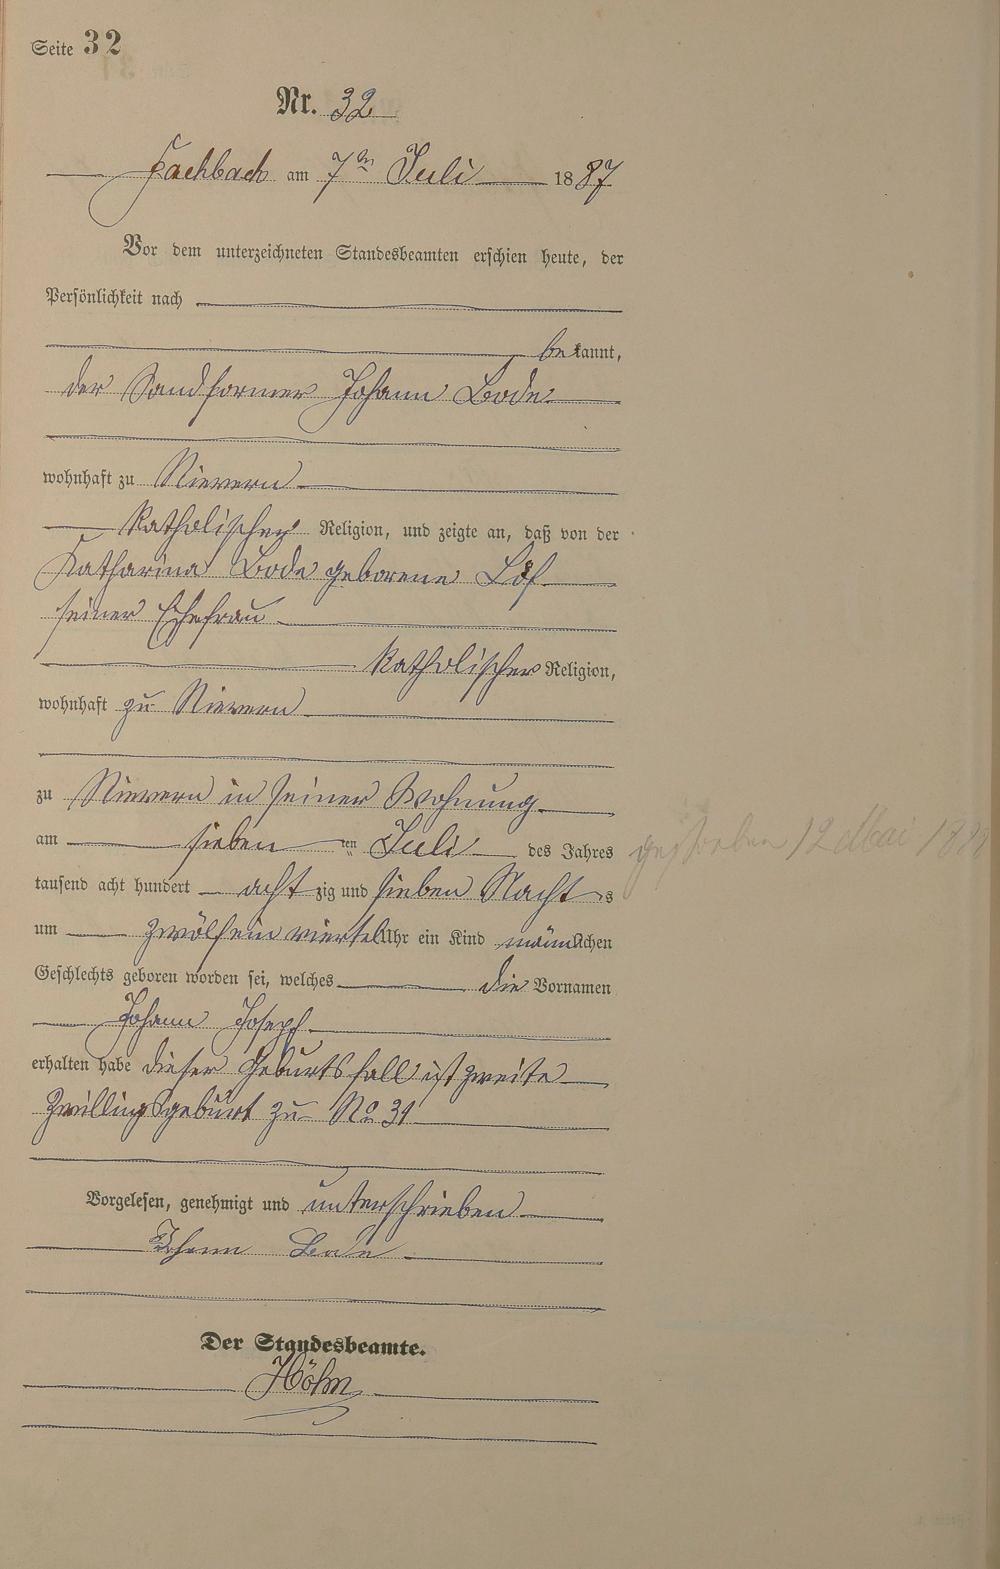 Seite 32
Nr. 32
Fachbach am 7ten Juli 1887
Vor dem unterzeichneten Standesbeamten erschien heute, der
Persönlichkeit nach
bekannt,
der Sandformer Johann Bode
wohnhaft zu Nievern
katholischer Religion, und zeigte an, daß von der
Katharina Bode geborene Löf
seiner Ehefrau
katholischer Religion,
wohnhaft zu Nievern
zu Nievern in seiner Wohnung
am siebenten Juli des Jahres
tausend acht hundert achtzig und sieben Nachts
um zwölfeinviertel Uhr ein Kind männlichen
Geschlechts geboren worden sei, welches die Vornamen
Johann Joseph
erhalten habe dieser Geburtsfall ist zweite
Zwillingsgeburt zu No 31
Vorgelesen, genehmigt und unterschrieben
Johann Bode
Der Standesbeamte.
Höhn
gestorben 12 Mai 1888